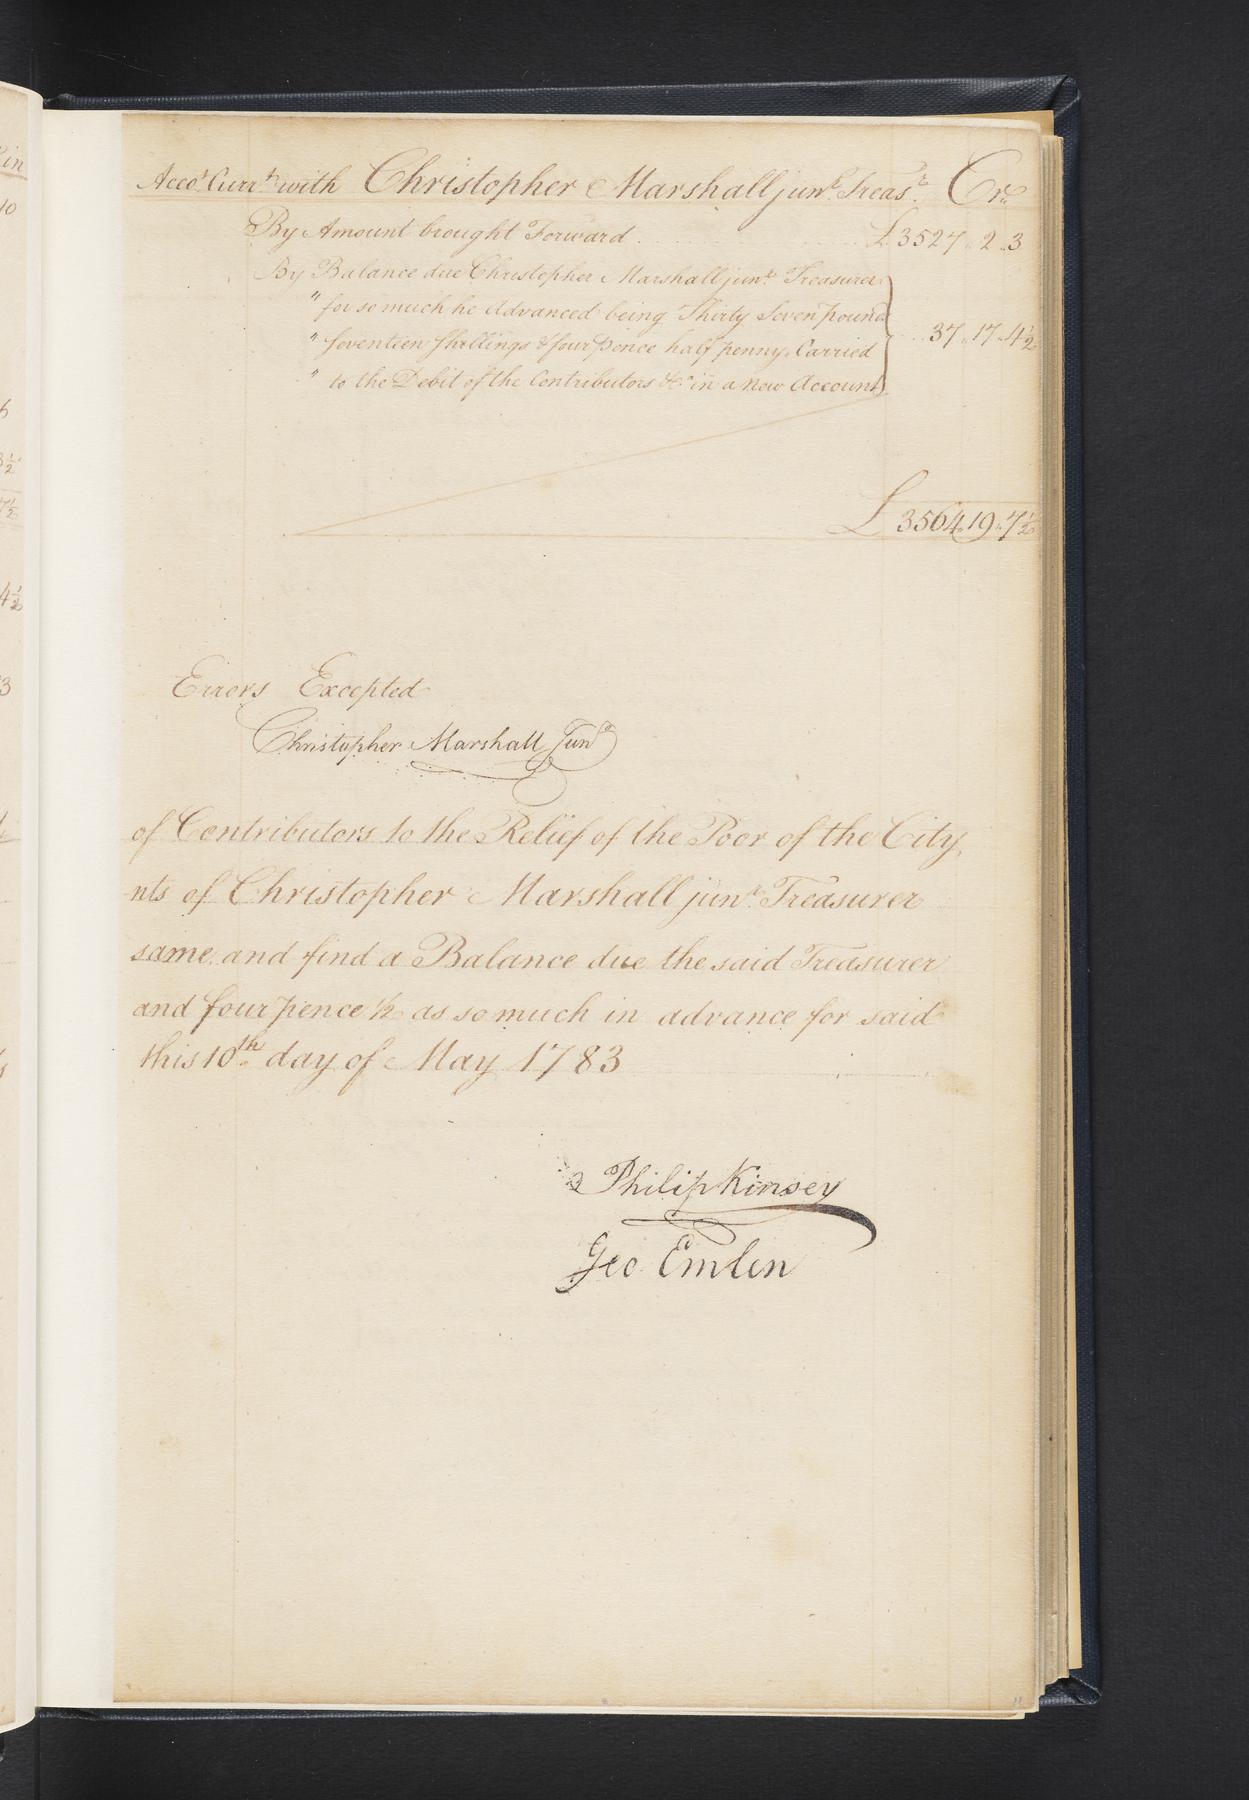 Acco.t Curr.t with Christopher Marshall jun.r Treas.r Cr.
By Amount brought Forward £3527 .. 2 .. 3
By Balance due Christopher Marshall jun.r Treasurer
" for so much he Advanced being Thirty Seven pound
" seventeen Shillings & four pence half penny Carried 37 .. 17 .. 4½
" to the Debit of the Contributors &c.a in a New Account
£ 3564 .. 19 .. 7½
Errors Excepted
Christopher Marshall Jun.r
of Contributors to the Relief of the Poor of the City
nts of Christopher Marshall jun.r Treasurer
same and find a Balance due the said Treasurer
and four pence ½ as so much in advance for said
this 10th day of May 1783
Philip Kinsey
Geo Emlen